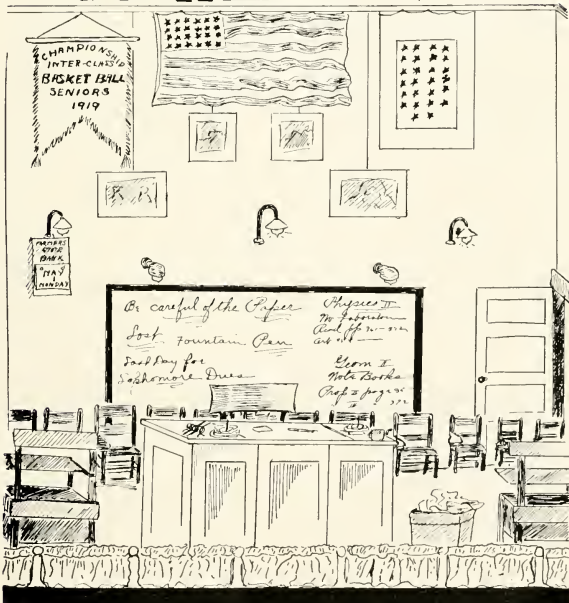 CHAMPIONSHIP
INTER-CLASS
BASKET BALL
SENIORS
1919
FARMERS
BANK
MAY
1
MONDAY
Be careful of the Paper
Lost Fountain Pen
Last Day for
Sophomore Dues
Physics II
Laboratory
Read pp
Geom I
Note Books
Prop II page